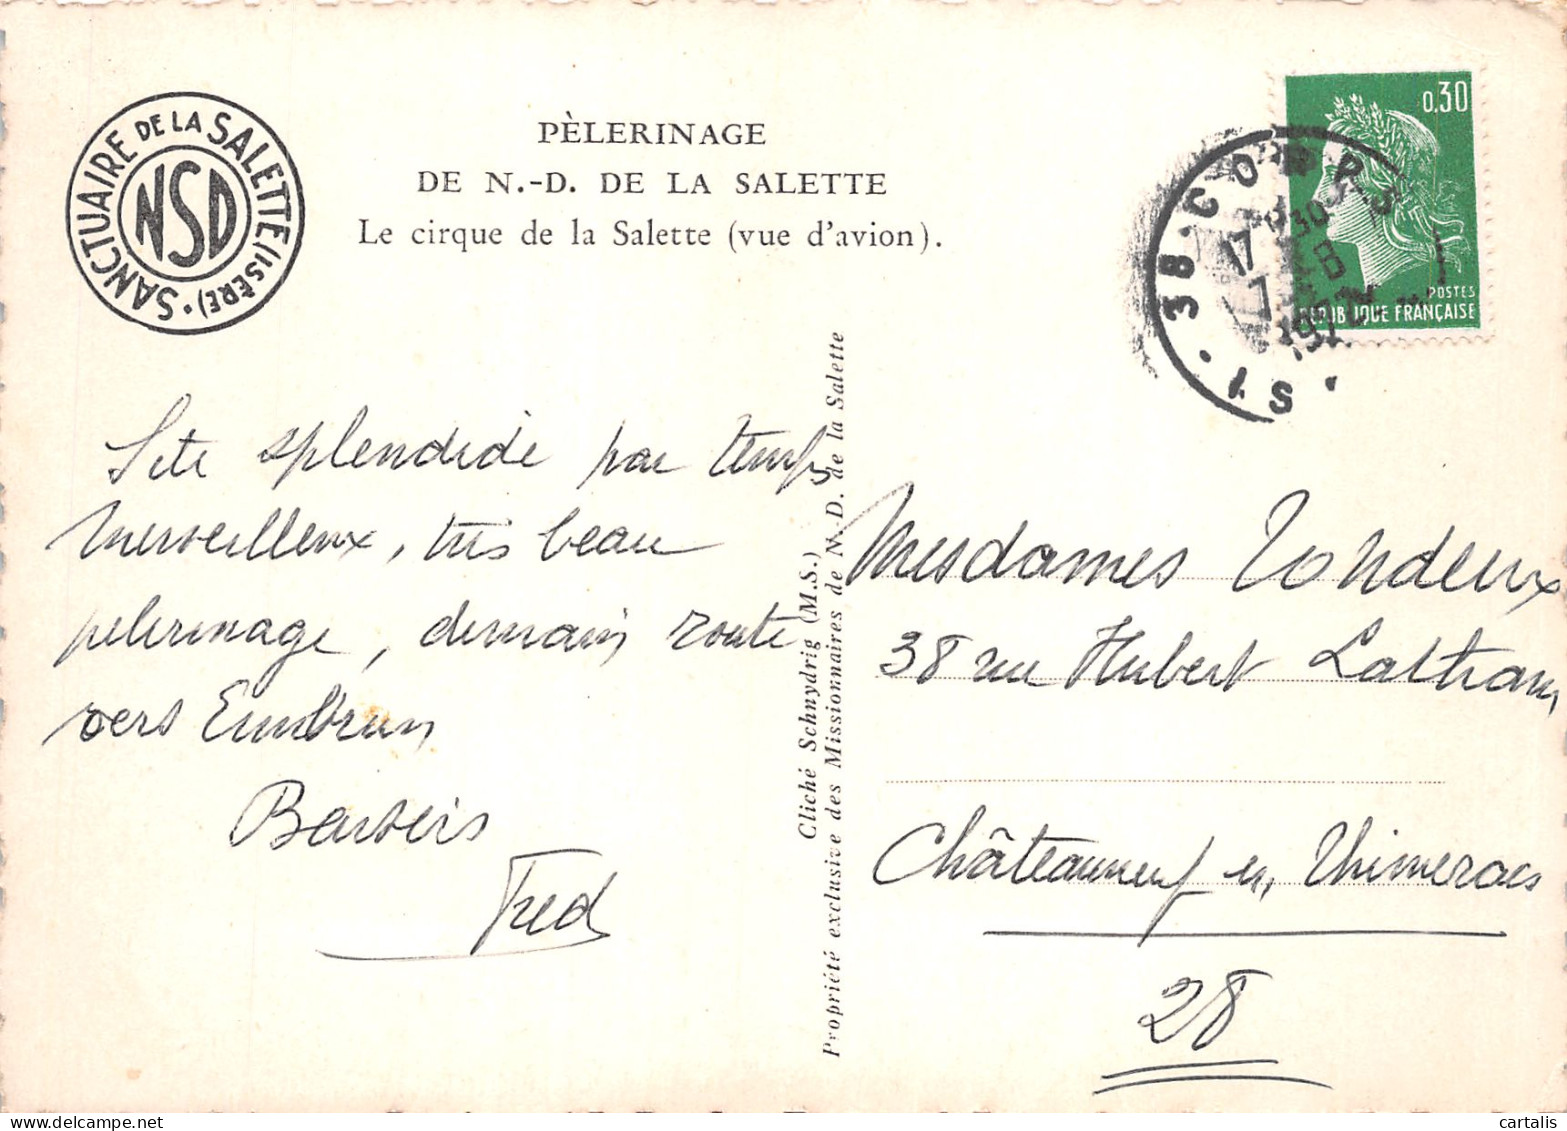 SANCTUAIRE DE LA SALETTE (ISÈRE) •
NSD
PÈLERINAGE
DE N.-D. DE LA SALETTE
Le cirque de la Salette (vue d'avion).
0,30
POSTES
REPUBLIQUE FRANÇAISE
38 • CORPS
17 H 30
7 - 8
1972
Site splendide par temps
merveilleux, très beau
pelerinage, demain route
vers Embrun
Baisers
Fred
Cliché Schnydrig (M.S.)
Propriété exclusive des Missionnaires de N.-D. de la Salette
Mesdames Tondeux
38 rue Hubert Latham
Châteauneuf en Thimerais
28
cartalis